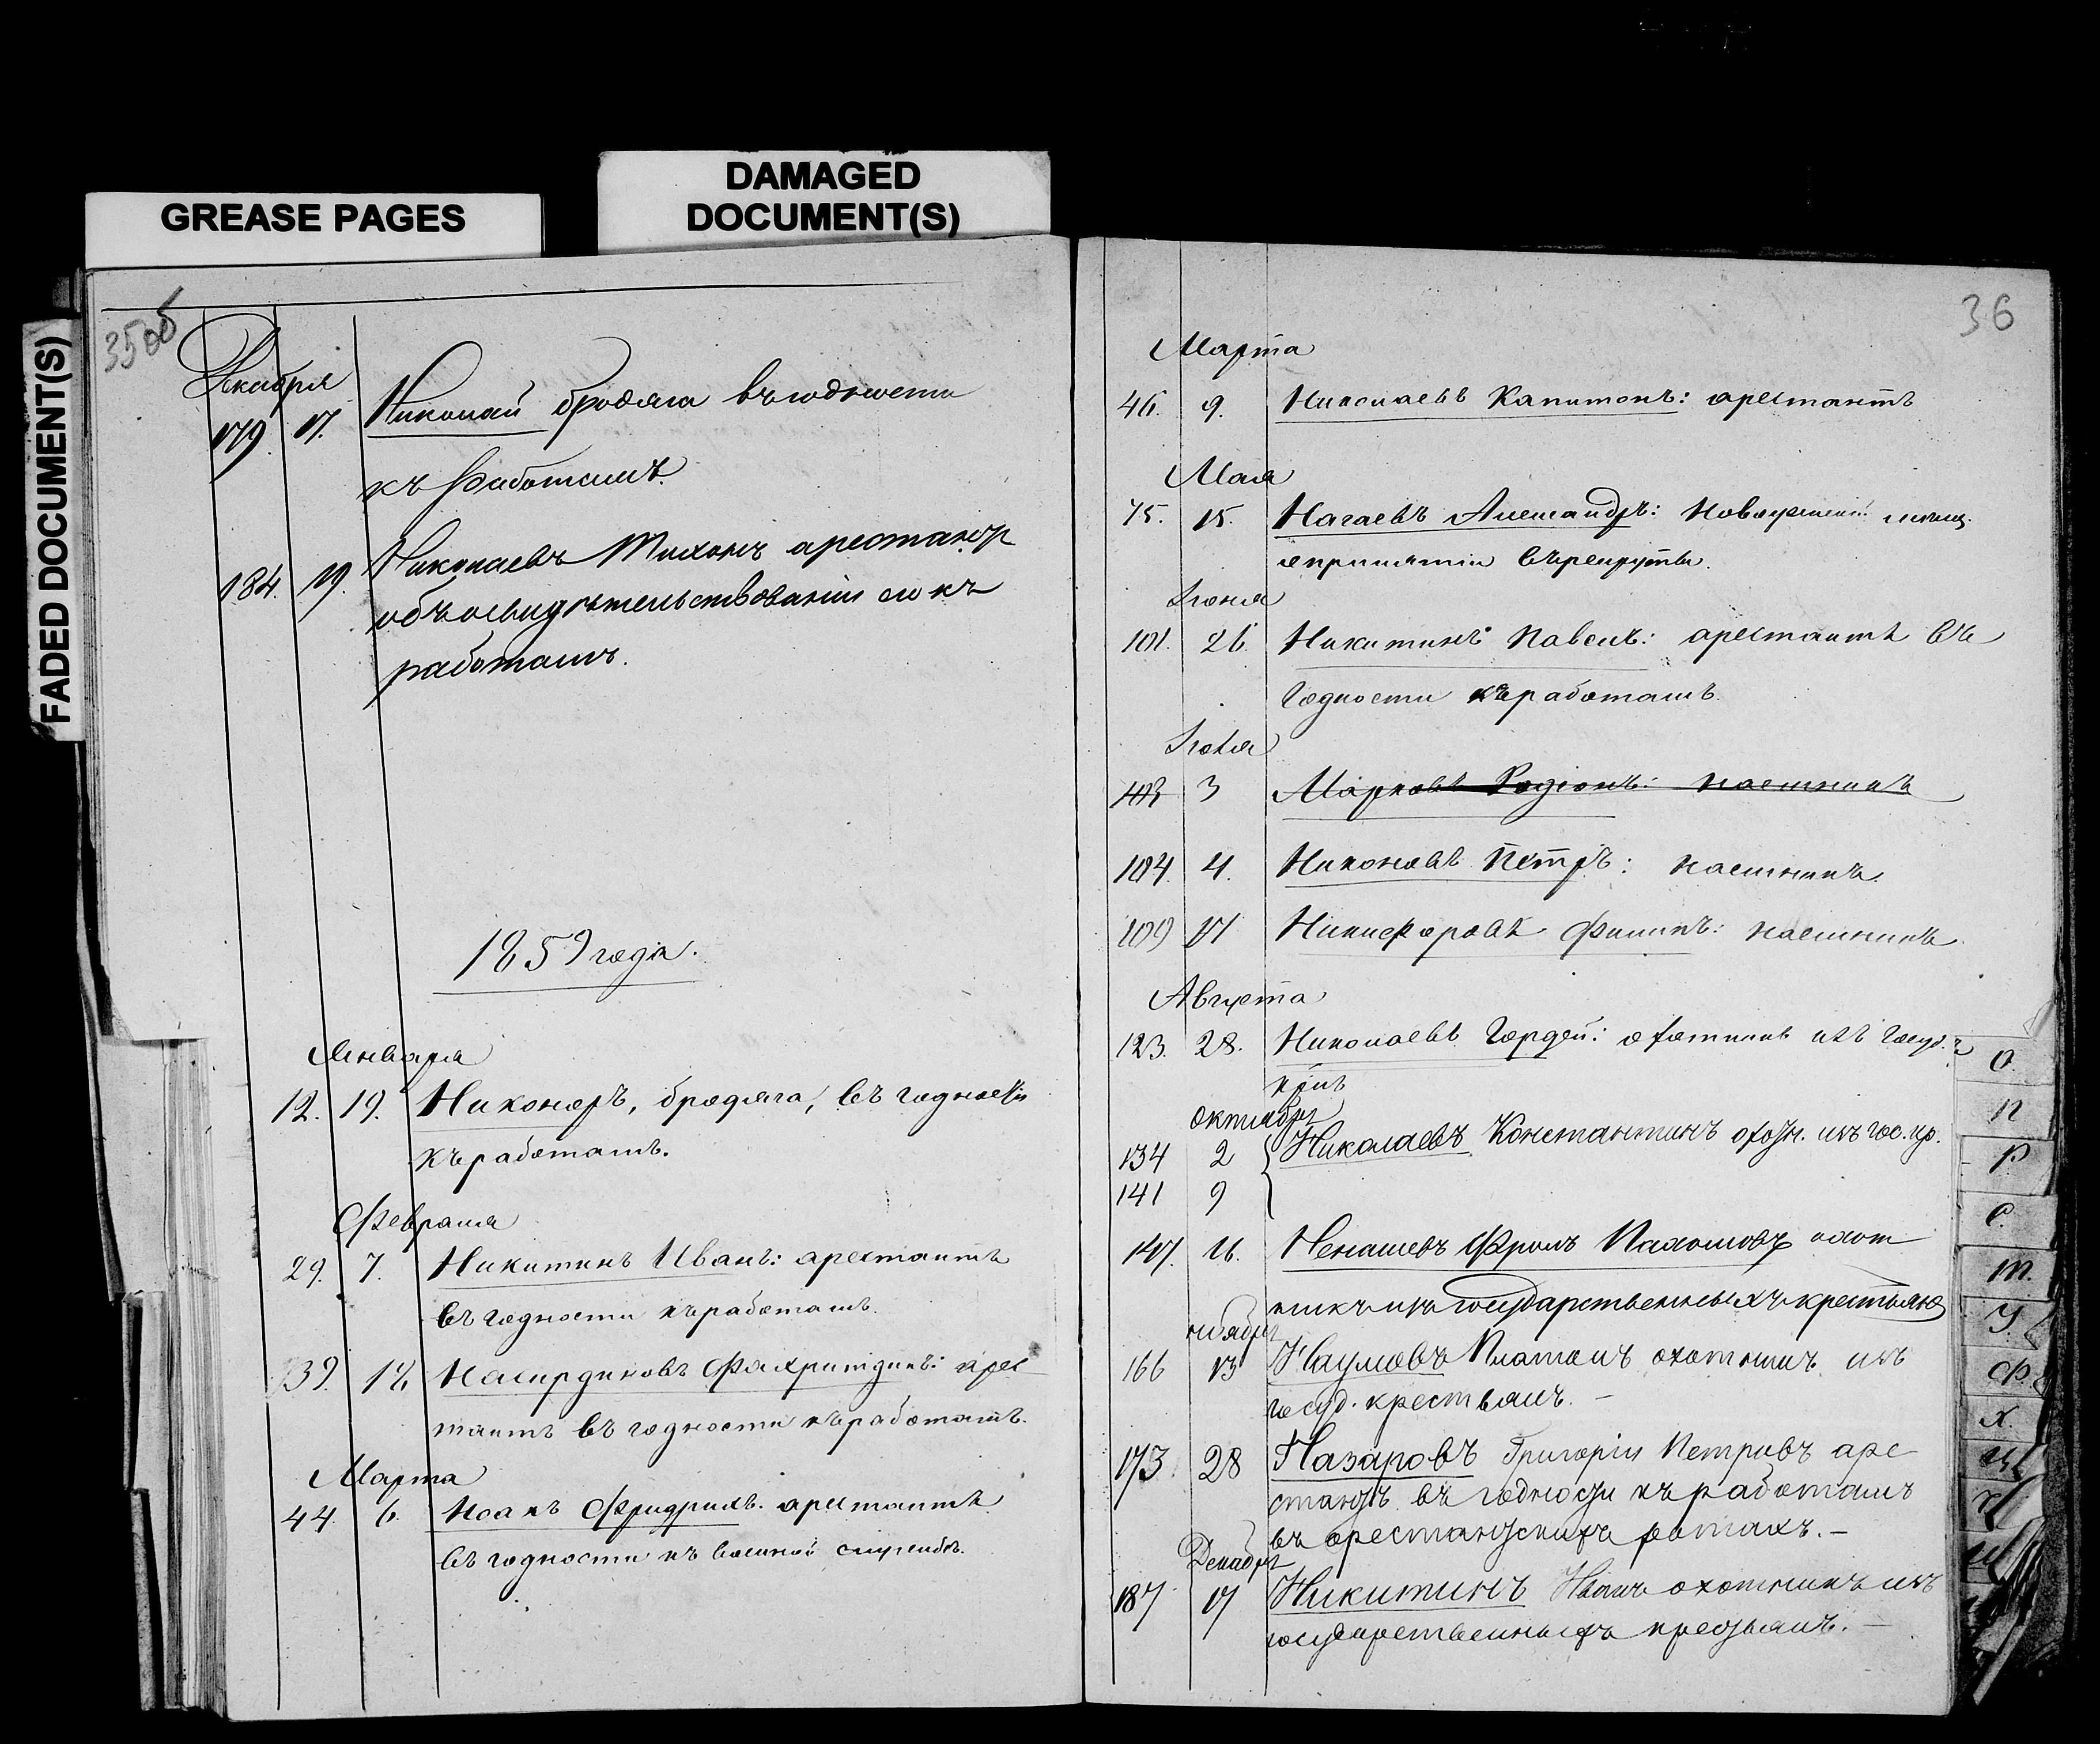 GREASE PAGES
DAMAGED
DOCUMENT(S)
FADED DOCUMENT(S)
35 об
Декабря
179. 17. Николай бродяга въ годности
къ работамъ.
184. 19. Николаевъ Тихонъ арестант
объ освидѣтельствованіи его къ
работамъ.
1859 года.
Января
12. 19. Никоноръ, бродяга, въ годности
къ работамъ.
Февраля
29. 7. Никитинъ Иванъ: арестантъ
въ годности къ работамъ.
39. 18 Насирдиновъ Фахритдинъ: арес
тантъ въ годности къ работамъ.
Марта
44. 6. Фридрихъ. арестантъ
въ годности къ военной службѣ.
36
Марта
46. 9. Николаевъ Капитонъ: арестантъ
Мая
75. 15. Нагаевъ Александръ: Новоузенскій мѣщ.
о принятіи въ рекруты.
Іюня
101. 26. Никитинъ Павелъ: арестантъ въ
годности къ работамъ.
Іюля
103 3 Марковъ Родіонъ: наемникъ
104. 4. Никоновъ Петръ: наемникъ.
109 17 Никифоровъ Филипъ: наемникъ.
Августа
123. 28. Николаевъ Гордей: охотникъ изъ Госуд.
крпъ
октября
134 2 Николаевъ Константинъ охотн. изъ гос. кр.
141 9
147. 16. Ненашевъ Фролъ Пахомовъ охот
никъ изъ государственныхъ крестьянъ
ноября
166 13 Наумовъ Платонъ охотникъ изъ
госуд. крестьянъ. –
173. 28 Назаровъ Григорій Петровъ аре
стантъ въ годности къ работамъ
въ арестантскихъ ротахъ. –
Декабря
187 17 Никитинъ Иванъ охотникъ изъ
государственныхъ крестьянъ. –
О.
П
Р.
С.
Т.
У.
Ф.
Х.
Ц
Ч
Ш